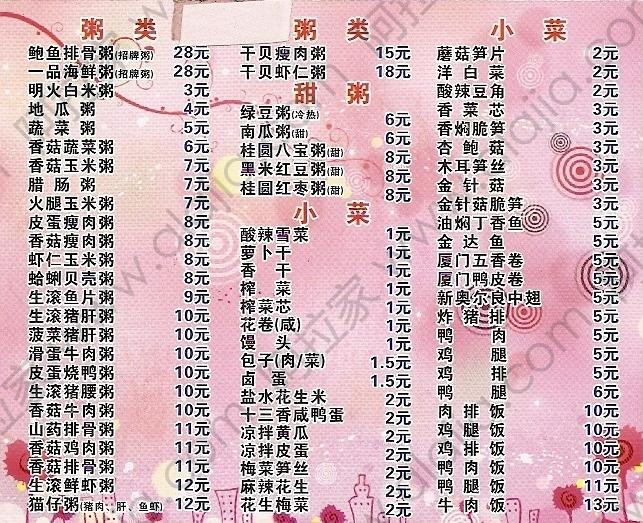 粥 类
鲍鱼排骨粥(招牌粥) 28元
一品海鲜粥(招牌粥) 28元
明火白米粥 3元
地瓜粥 4元
蔬菜粥 5元
香菇蔬菜粥 6元
香菇玉米粥 7元
腊肠粥 7元
火腿玉米粥 7元
皮蛋瘦肉粥 8元
香菇瘦肉粥 8元
虾仁玉米粥 8元
蛤蜊贝壳粥 8元
生滚鱼片粥 9元
生滚猪肝粥 10元
菠菜猪肝粥 10元
滑蛋牛肉粥 10元
皮蛋烧鸭粥 10元
生滚猪腰粥 10元
香菇牛肉粥 10元
山药排骨粥 11元
香菇鸡肉粥 11元
香菇排骨粥 11元
生滚鲜虾粥 12元
猫仔粥(猪肉、肝、鱼虾) 12元
粥 类
干贝瘦肉粥 15元
干贝虾仁粥 18元
甜 粥
绿豆粥(冷热) 6元
南瓜粥(甜) 6元
桂圆八宝粥(甜) 8元
黑米红豆粥(甜) 8元
桂圆红枣粥(甜) 8元
小 菜
酸辣雪菜 1元
萝卜干 1元
香干 1元
榨菜 1元
榨菜芯 1元
花卷(咸) 1元
馒头 1元
包子(肉/菜) 1.5元
卤蛋 1.5元
盐水花生米 2元
十三香咸鸭蛋 2元
凉拌黄瓜 2元
凉拌皮蛋 2元
梅菜笋丝 2元
麻辣花生 2元
花生梅菜 2元
小 菜
蘑菇笋片 2元
洋白菜 2元
酸辣豆角 2元
香菜芯 3元
香焖脆笋 3元
杏鲍菇 3元
木耳笋丝 3元
金针菇 3元
金针菇脆笋 3元
油焖丁香鱼 5元
金达鱼 5元
厦门五香卷 5元
厦门鸭皮卷 5元
新奥尔良中翅 5元
炸猪排 5元
鸭肉 5元
鸡腿 5元
鸡排 5元
鸭腿 6元
肉排饭 10元
鸡腿饭 10元
鸡排饭 10元
鸭肉饭 10元
鸭腿饭 11元
牛肉饭 13元